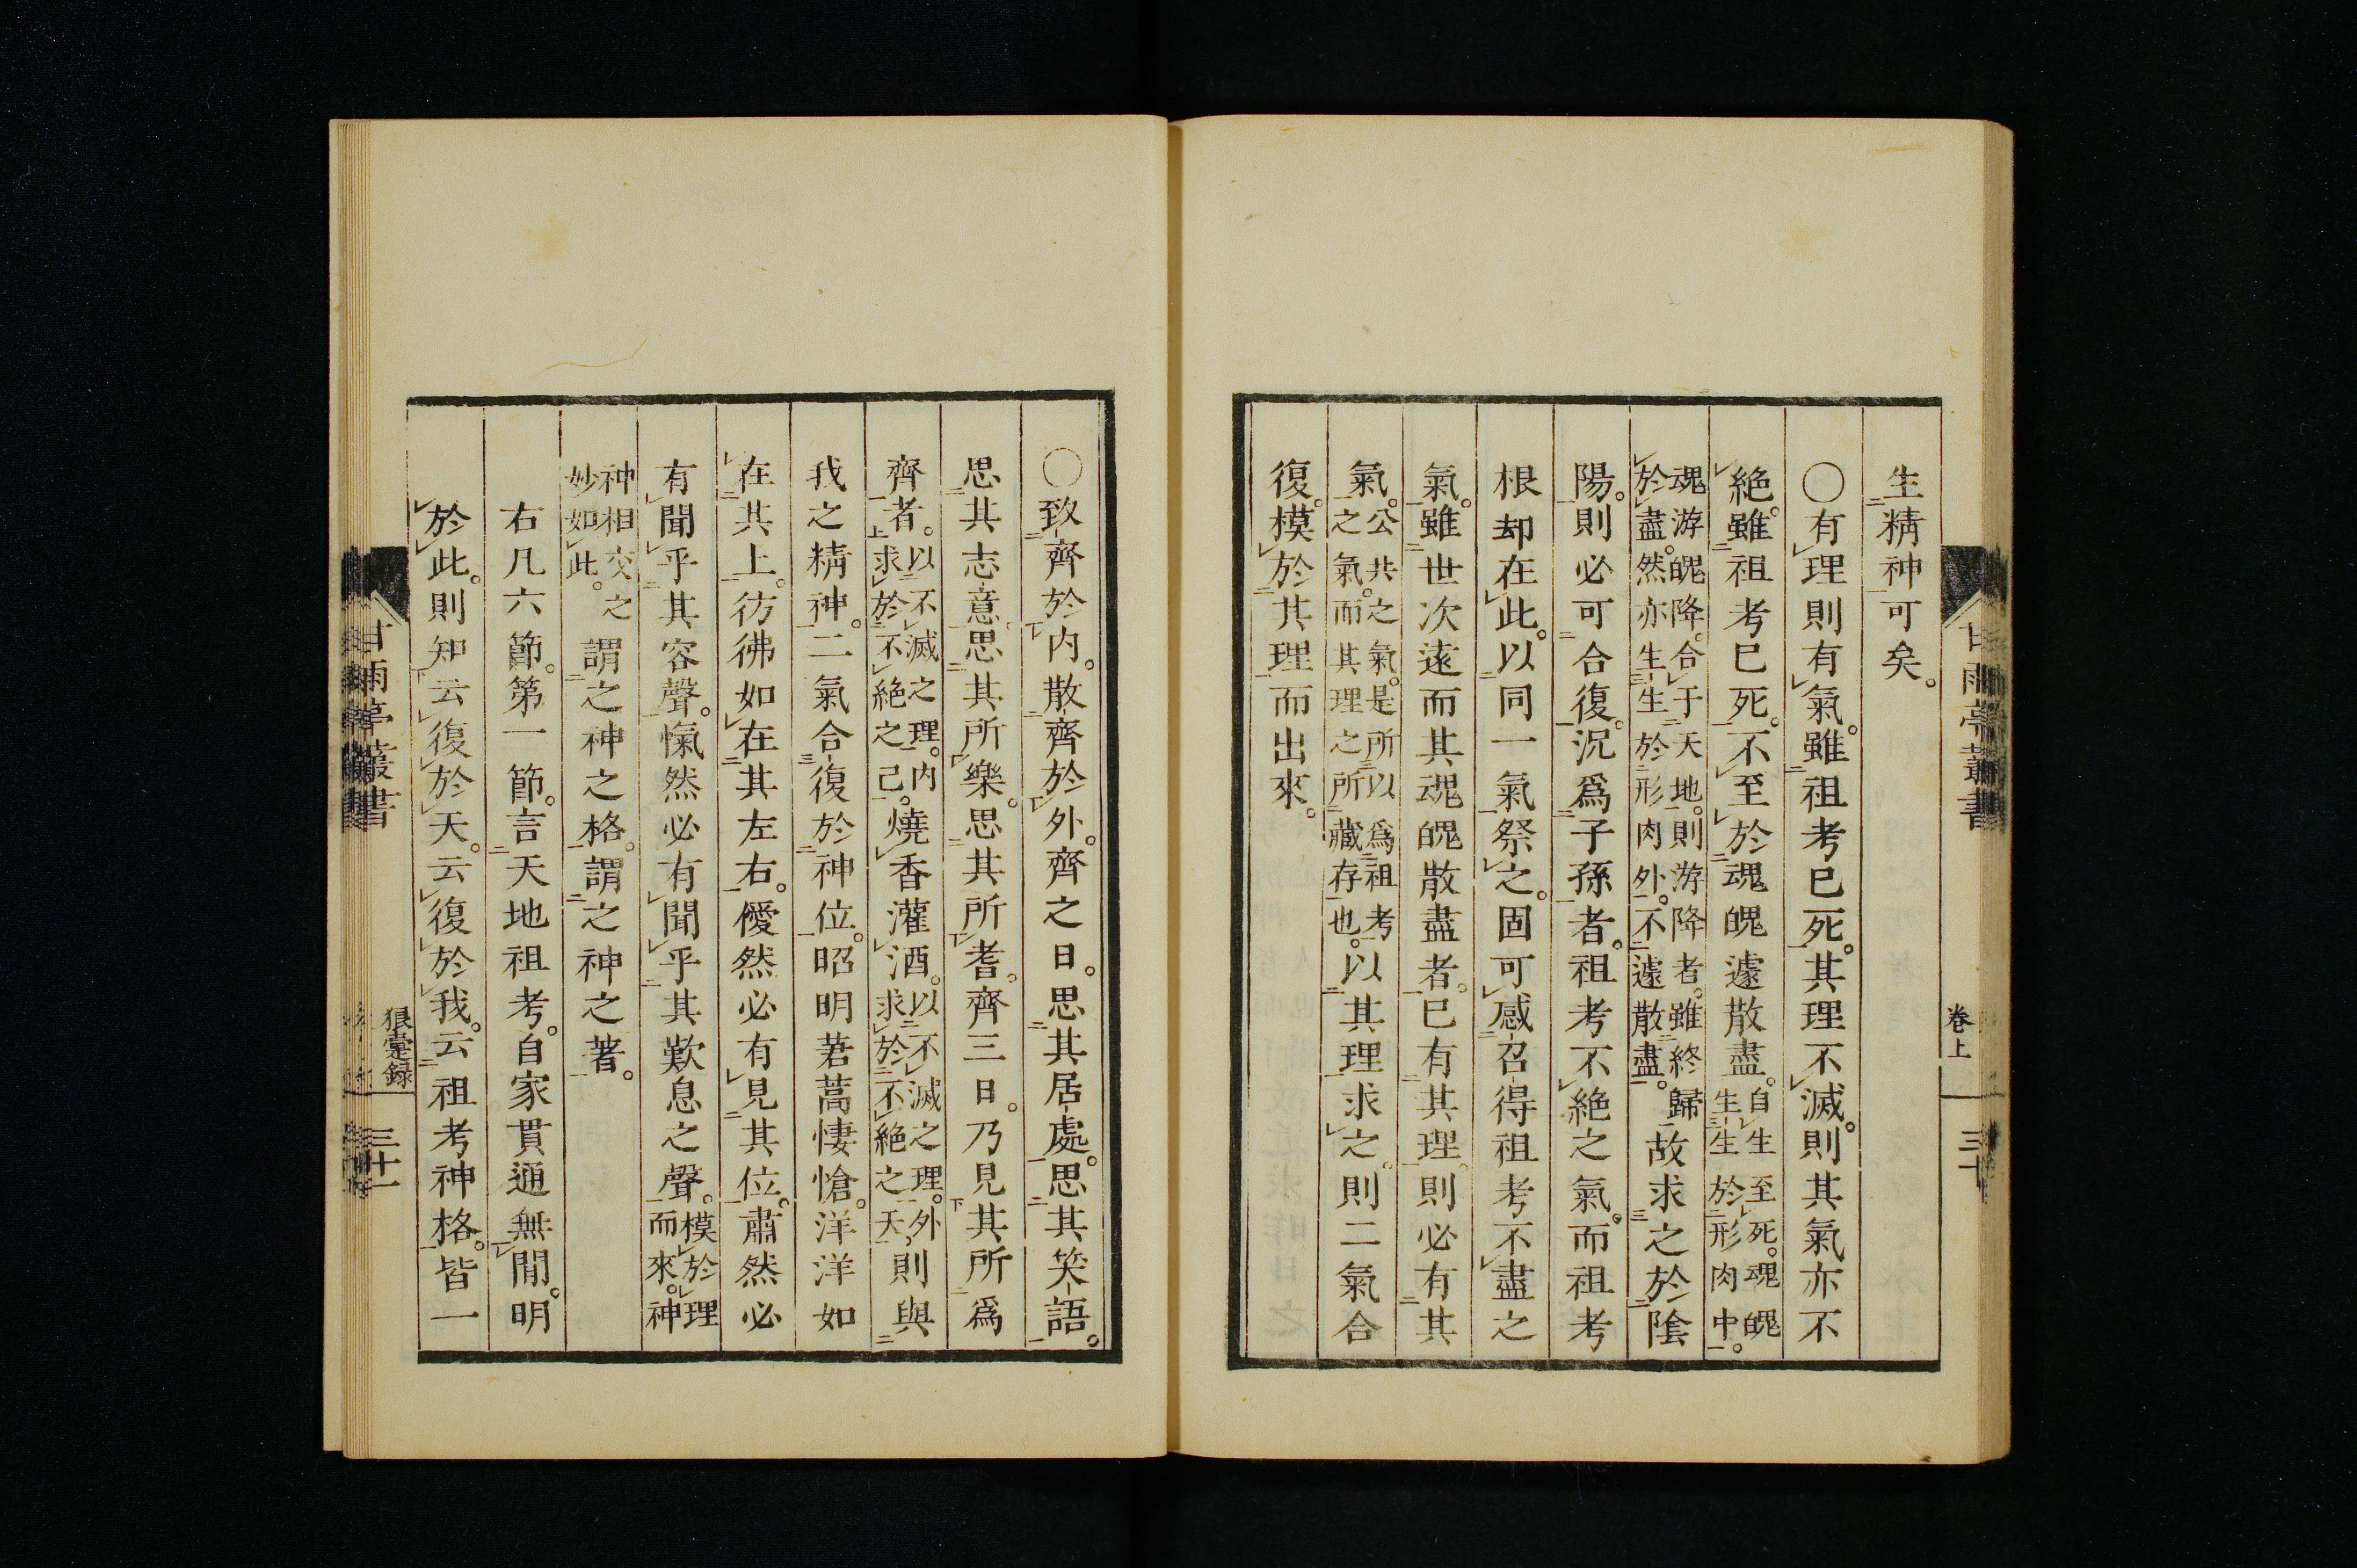 生精神可矣。
○有理則有氣。雖祖考已死。其理不滅。則其氣亦不
絕。雖祖考已死。不至於魂魄遽散盡。自生至死。魂魄生生於形肉中。
魂游魄降。合于天地。則游降者。雖終歸於盡。然亦生生於形肉外。不遽散盡。故求之於陰
陽。則必可合復。況爲子孫者。祖考不絕之氣。而祖考
根却在此。以同一氣祭之。固可感召得祖考不盡之
氣。雖世次遠而其魂魄散盡者。已有其理。則必有其
氣。公共之氣。是所以爲祖考之氣。而其理之所藏存也。以其理求之。則二氣合
復。模於其理而出來。
甘雨亭叢書
卷上
三十
○致齊於內。散齊於外。齊之日。思其居處。思其笑語。
思其志意思其所樂。思其所耆。齊三日。乃見其所爲
齊者。以不滅之理。內求於不絕之己。燒香灌酒。以不滅之理。外求於不絕之天。則與
我之精神。二氣合復於神位。昭明焄蒿悽愴。洋洋如
在其上。彷彿如在其左右。僾然必有見其位。肅然必
有聞乎其容聲。愾然必有聞乎其歎息之聲。模於理而來。神
神相交之妙如此。謂之神之格。謂之神之著。
右凡六節。第一節。言天地祖考。自家貫通無間。明
於此。則知云復於天。云復於我。云祖考神格。皆一
甘雨亭叢書
狼疐録
三十一